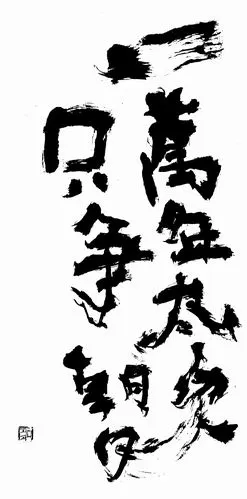 一萬年太久
只争朝夕